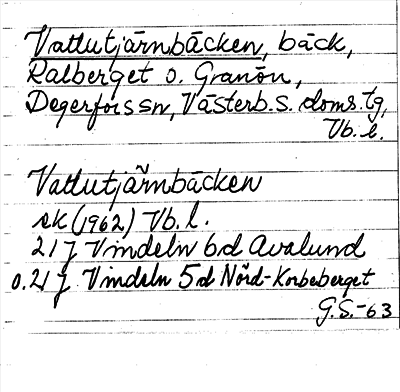 Vattutjärnbäcken, bäck,
Ralberget o. Granön,
Degerfors sn, Västerb.s. doms.tg,
Vb.l.
Vattutjärnbäcken
ek (1962) Vb.l.
21 J Vindeln 6d Avalund
o. 21 J Vindeln 5d Nörd-Korbeberget
G.S.-63